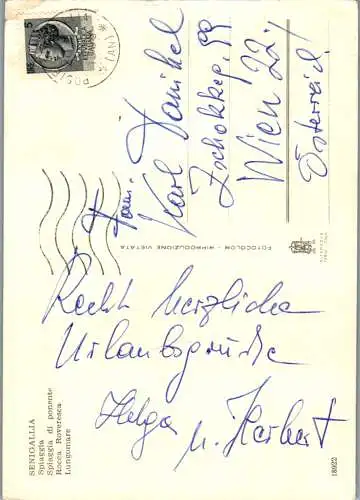 SENIGALLIA
Spiaggia
Spiaggia di ponente
Rocca Roveresca
Lungomare
Recht herzliche
Urlaubsgrüße
Helga
u. Herbert
18922
FOTOCOLOR - RIPRODUZIONE VIETATA
Fam.
Karl Danihel
Zschokkeg. 99
Wien 22.
Österreich!
5